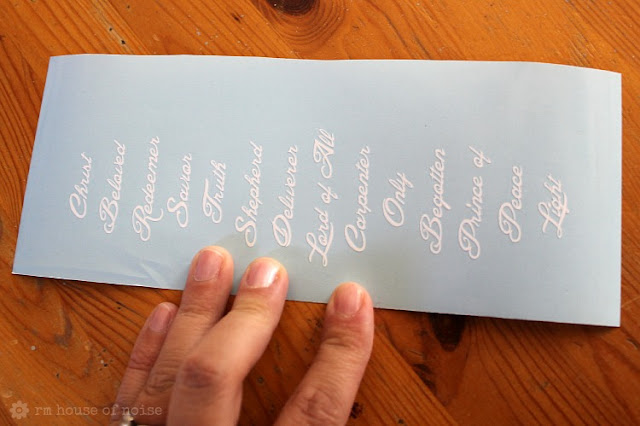 Christ
Beloved
Redeemer
Savior
Truth
Shepherd
Deliverer
Lord of All
Carpenter
Only
Begotten
Prince of
Peace
Light
rm house of noise